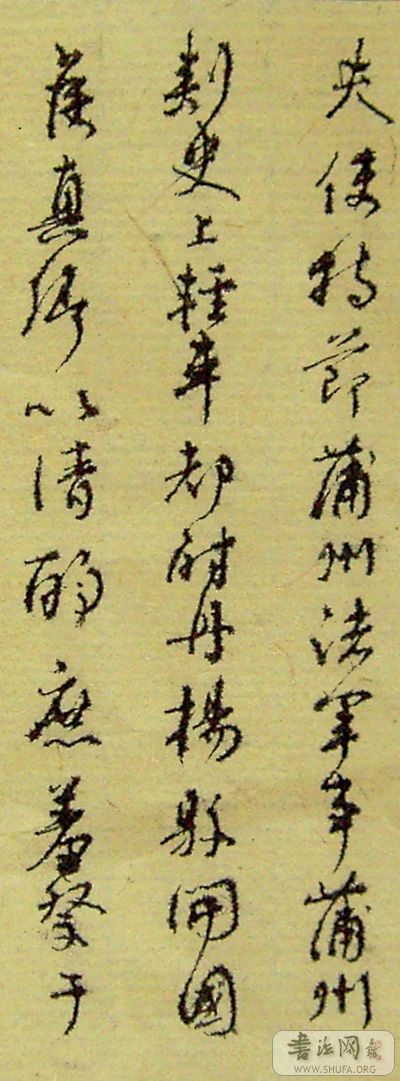 夫使持節蒲州諸軍事蒲州
刺史上輕車都尉丹楊縣開國
侯真卿以清酌庶羞祭于
書法网
WWW.SHUFA.ORG